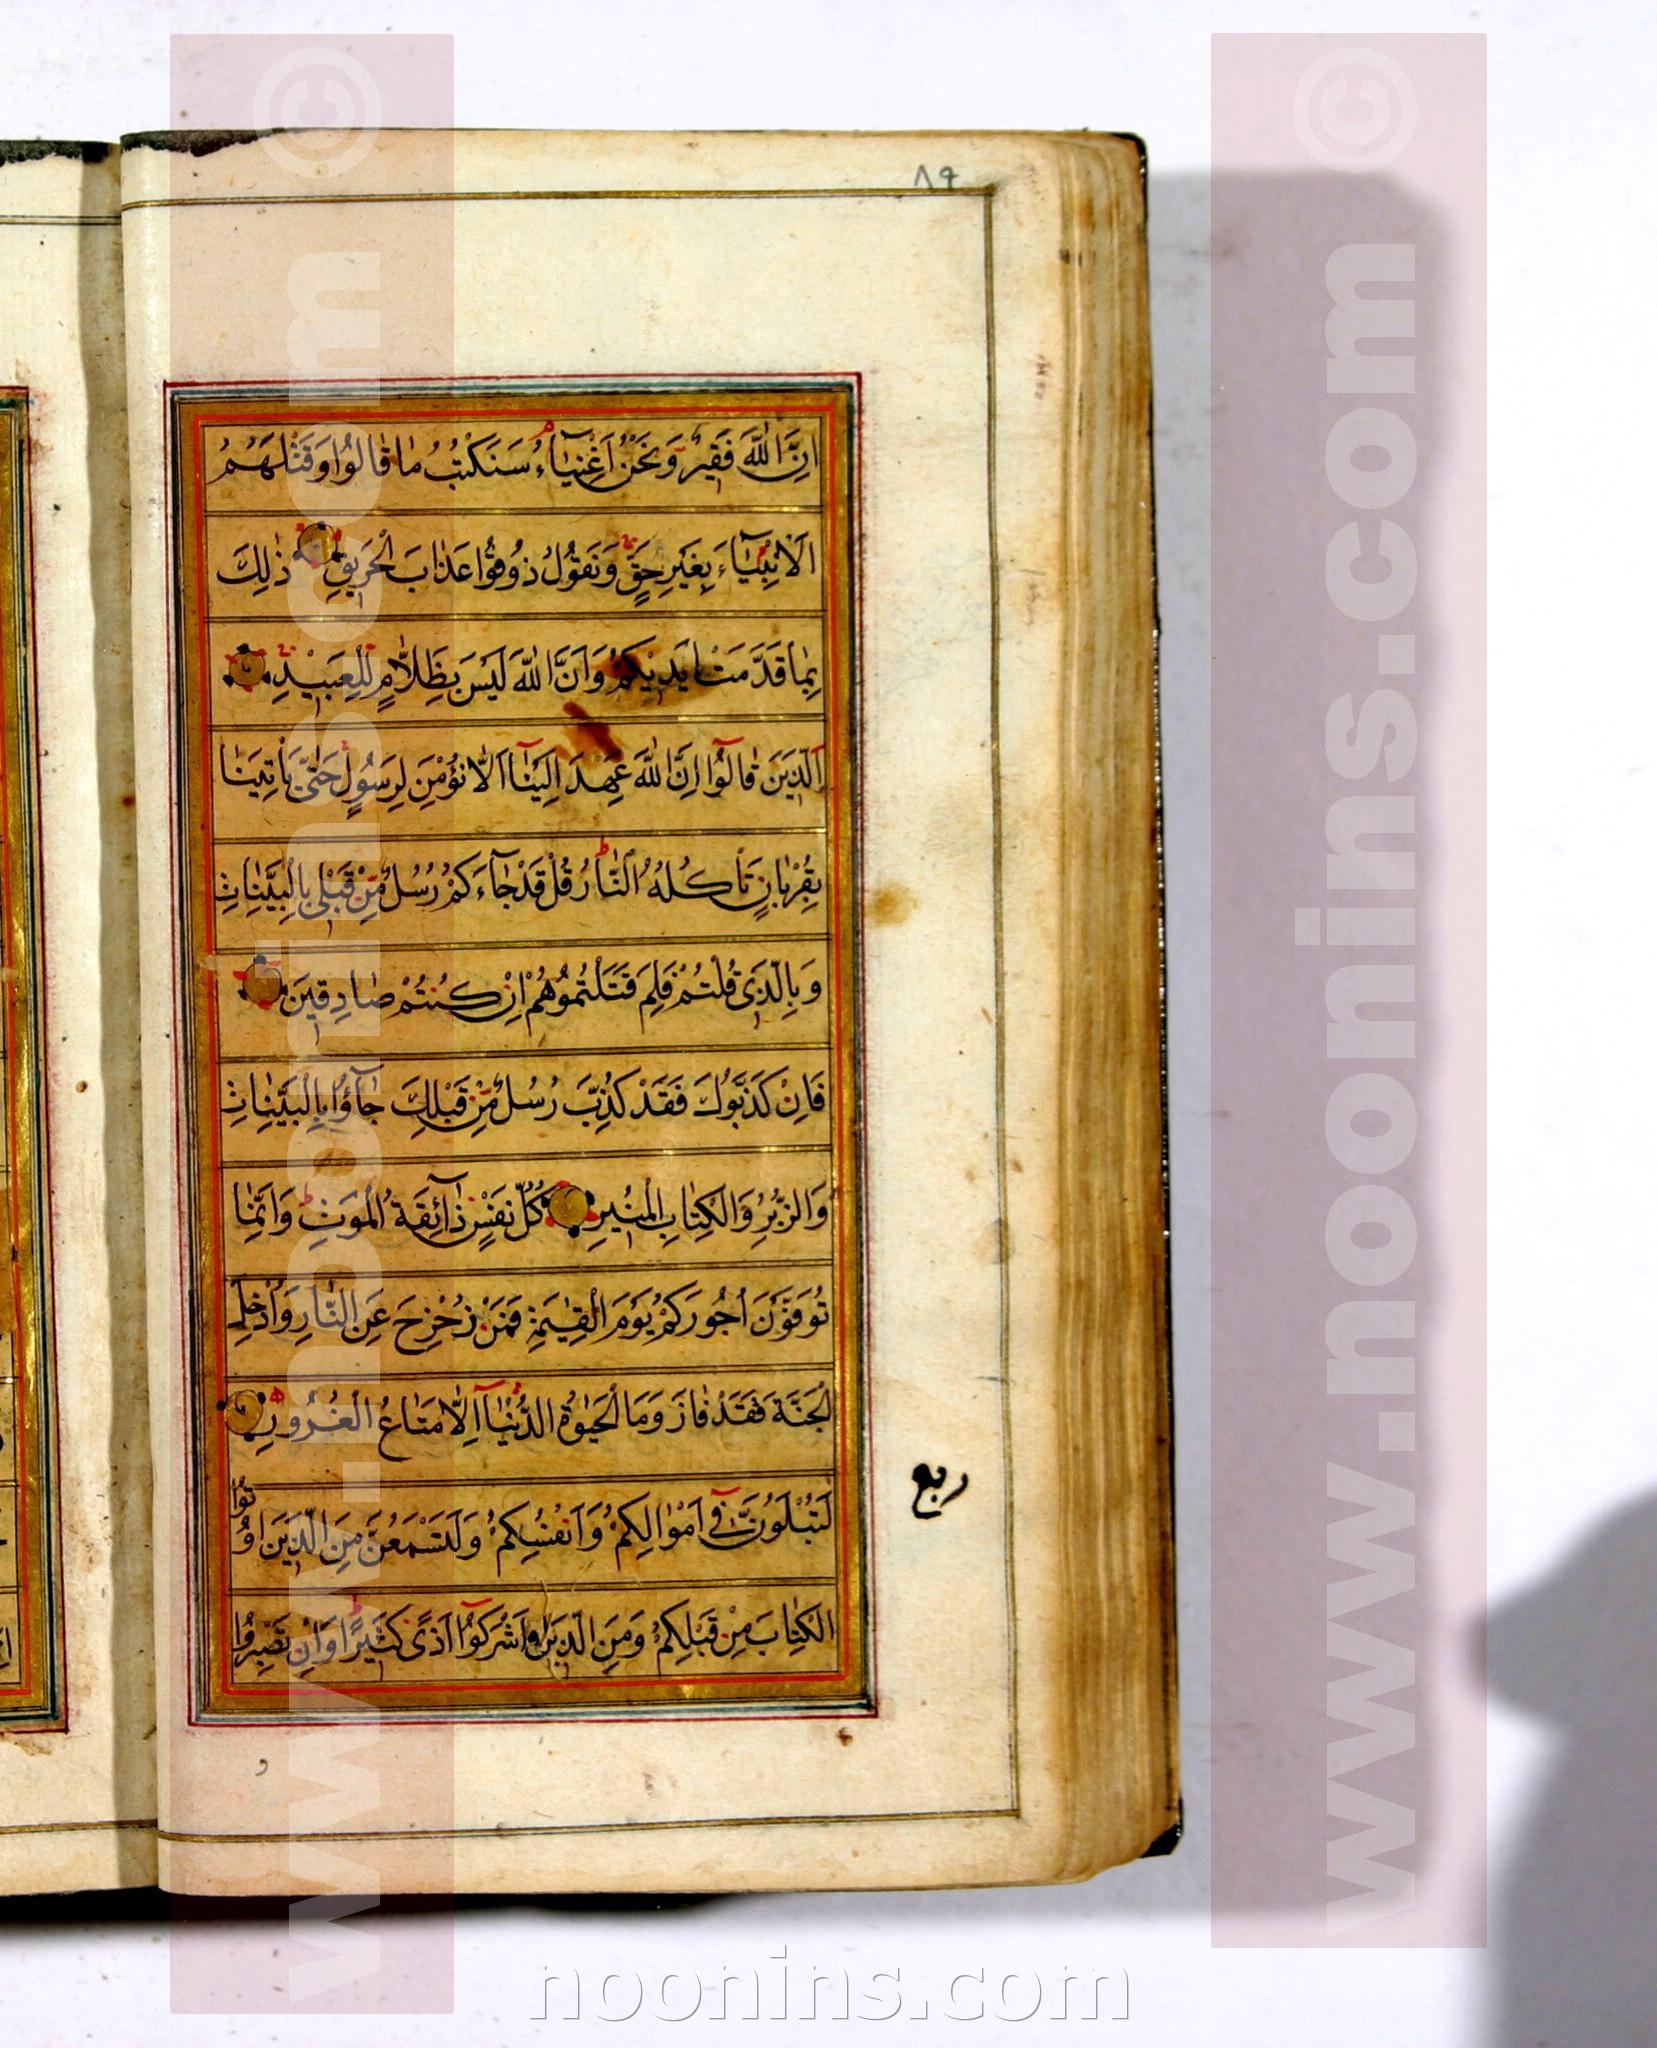 ٨٩
اِنَّ اللّٰهَ فَقِيرٌ وَنَحْنُ اَغْنِيَآءُ سَنَكْتُبُ مٰا قٰالُوا وَقَتْلَهُمُ
الْاَنْبِيٰٓاءَ بِغَيْرِ حَقٍّ وَنَقُولُ ذُوقُوا عَذٰابَ الْحَرِيقِ ذٰلِكَ
بِمٰا قَدَّمَتْ اَيْدِيكُمْ وَاَنَّ اللّٰهَ لَيْسَ بِظَلّٰامٍ لِلْعَبِيْدِ
اَلَّذِينَ قٰالُٓوا اِنَّ اللّٰهَ عَهِدَ اِلَيْنٰٓا اَلّٰا نُؤْمِنَ لِرَسُولٍ حَتّٰى يَأْتِيَنٰا
بِقُرْبٰانٍ تَأْكُلُهُ النّٰارُ قُلْ قَدْ جٰٓاءَكُمْ رُسُلٌ مِنْ قَبْلِي بِالْبَيِّنٰاتِ
وَبِالَّذِي قُلْتُمْ فَلِمَ قَتَلْتُمُوهُمْ اِنْ كُنْتُمْ صٰادِقِينَ
فَاِنْ كَذَّبُوكَ فَقَدْ كُذِّبَ رُسُلٌ مِنْ قَبْلِكَ جٰٓاؤُا بِالْبَيِّنٰاتِ
وَالزُّبُرِ وَالْكِتٰابِ الْمُنِيرِ كُلُّ نَفْسٍ ذٰٓائِقَةُ الْمَوْتِ وَاِنَّمٰا
تُوَفَّوْنَ اُجُورَكُمْ يَوْمَ الْقِيٰمَةِ فَمَنْ زُحْزِحَ عَنِ النّٰارِ وَاُدْخِلَ
الْجَنَّةَ فَقَدْ فٰازَ وَمَا الْحَيٰوةُ الدُّنْيٰٓا اِلّٰا مَتٰاعُ الْغُرُورِ
لَتُبْلَوُنَّ فِٓي اَمْوٰالِكُمْ وَاَنْفُسِكُمْ وَلَتَسْمَعُنَّ مِنَ الَّذِينَ اُوتُوا
الْكِتٰابَ مِنْ قَبْلِكُمْ وَمِنَ الَّذِينَ اَشْرَكُٓوا اَذًى كَثِيرًا وَاِنْ تَصْبِرُوا
ربع
و
www.noonins.com ©
www.noonins.com ©
noonins.com